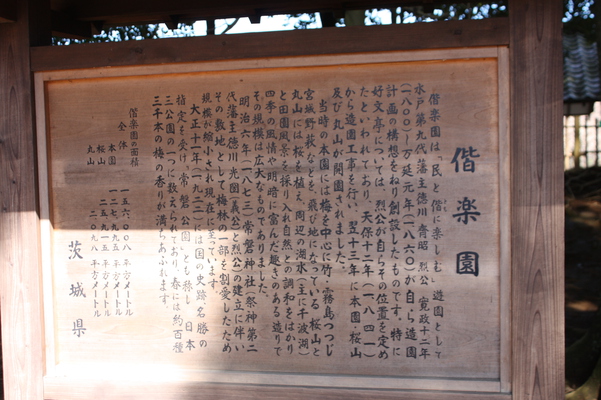 偕楽園
偕楽園は「民と偕に楽しむ」遊園として
水戸第九代藩主徳川斉昭(烈公・寛政十二年
(一八〇〇)-万延元年(一八六〇)が自ら造園
計画の構想をねり創設したものです。特に
好文亭については、烈公が自らその位置を定め
たといわれており、天保十二年(一八四一)
から造園工事を行い、翌十三年に本園・桜山
及び丸山が開園されました。
当時の本園には梅を中心に竹・霧島つつじ
宮城野萩などを、飛び地になっている桜山と
丸山には桜を植え、周辺の湖水(主に千波湖)
と田園風景を採り入れ自然との調和をはかり
四季の風情や明暗に富んだ趣きのある造りで
その規模は広大なものでありました。
明治六年(一八七三)常磐神社(祭神第二
代藩主徳川光圀(義公)と烈公)の建立に伴い
その敷地として梅林の一部を割愛したため
規模が縮小され現在に至ってます。
大正十一年(一九二二)には国の史跡名勝の
指定をうけ「常磐公園」とも称し、日本
三公園の一つに数えられており、春には約百種
三千本の梅の香りが満ちあふれます。
偕楽園の面積
全体 一五六、〇〇八 平方メートル
本園 一二七、九九五 平方メートル
桜山 二五、九一五 平方メートル
丸山 二、〇九八 平方メートル
茨城県